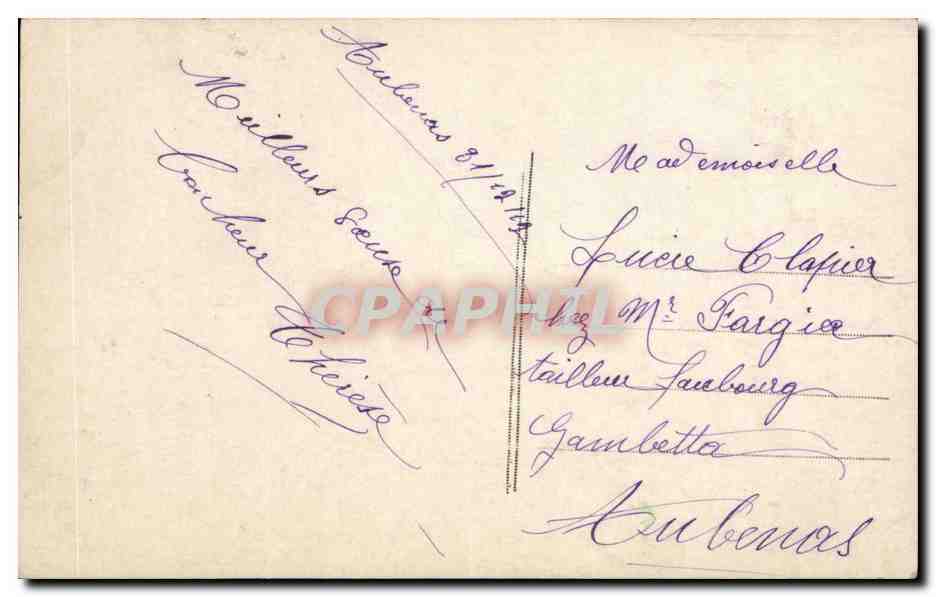 Aubenas 31/12/
Meilleurs Souhaits de
bonheur
Thérèse
Mademoiselle
Lucie Clapier
chez Mr. Fargier
tailleur faubourg
Gambetta
Aubenas
CPAPHIL